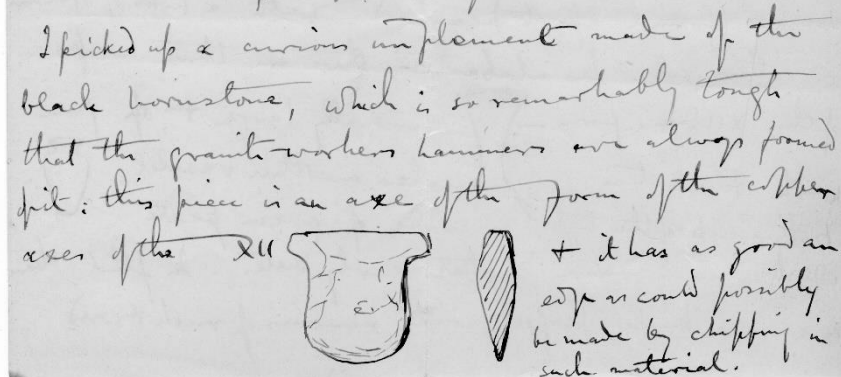 I picked up a curious implement made of the
black hornstone, which is so remarkably tough
that the granite-workers hammers are always formed
of it : this piece is an axe of the form of the copper
axes of the XII
+ it has as good an
edge as could possibly
be made by chipping in
such material.